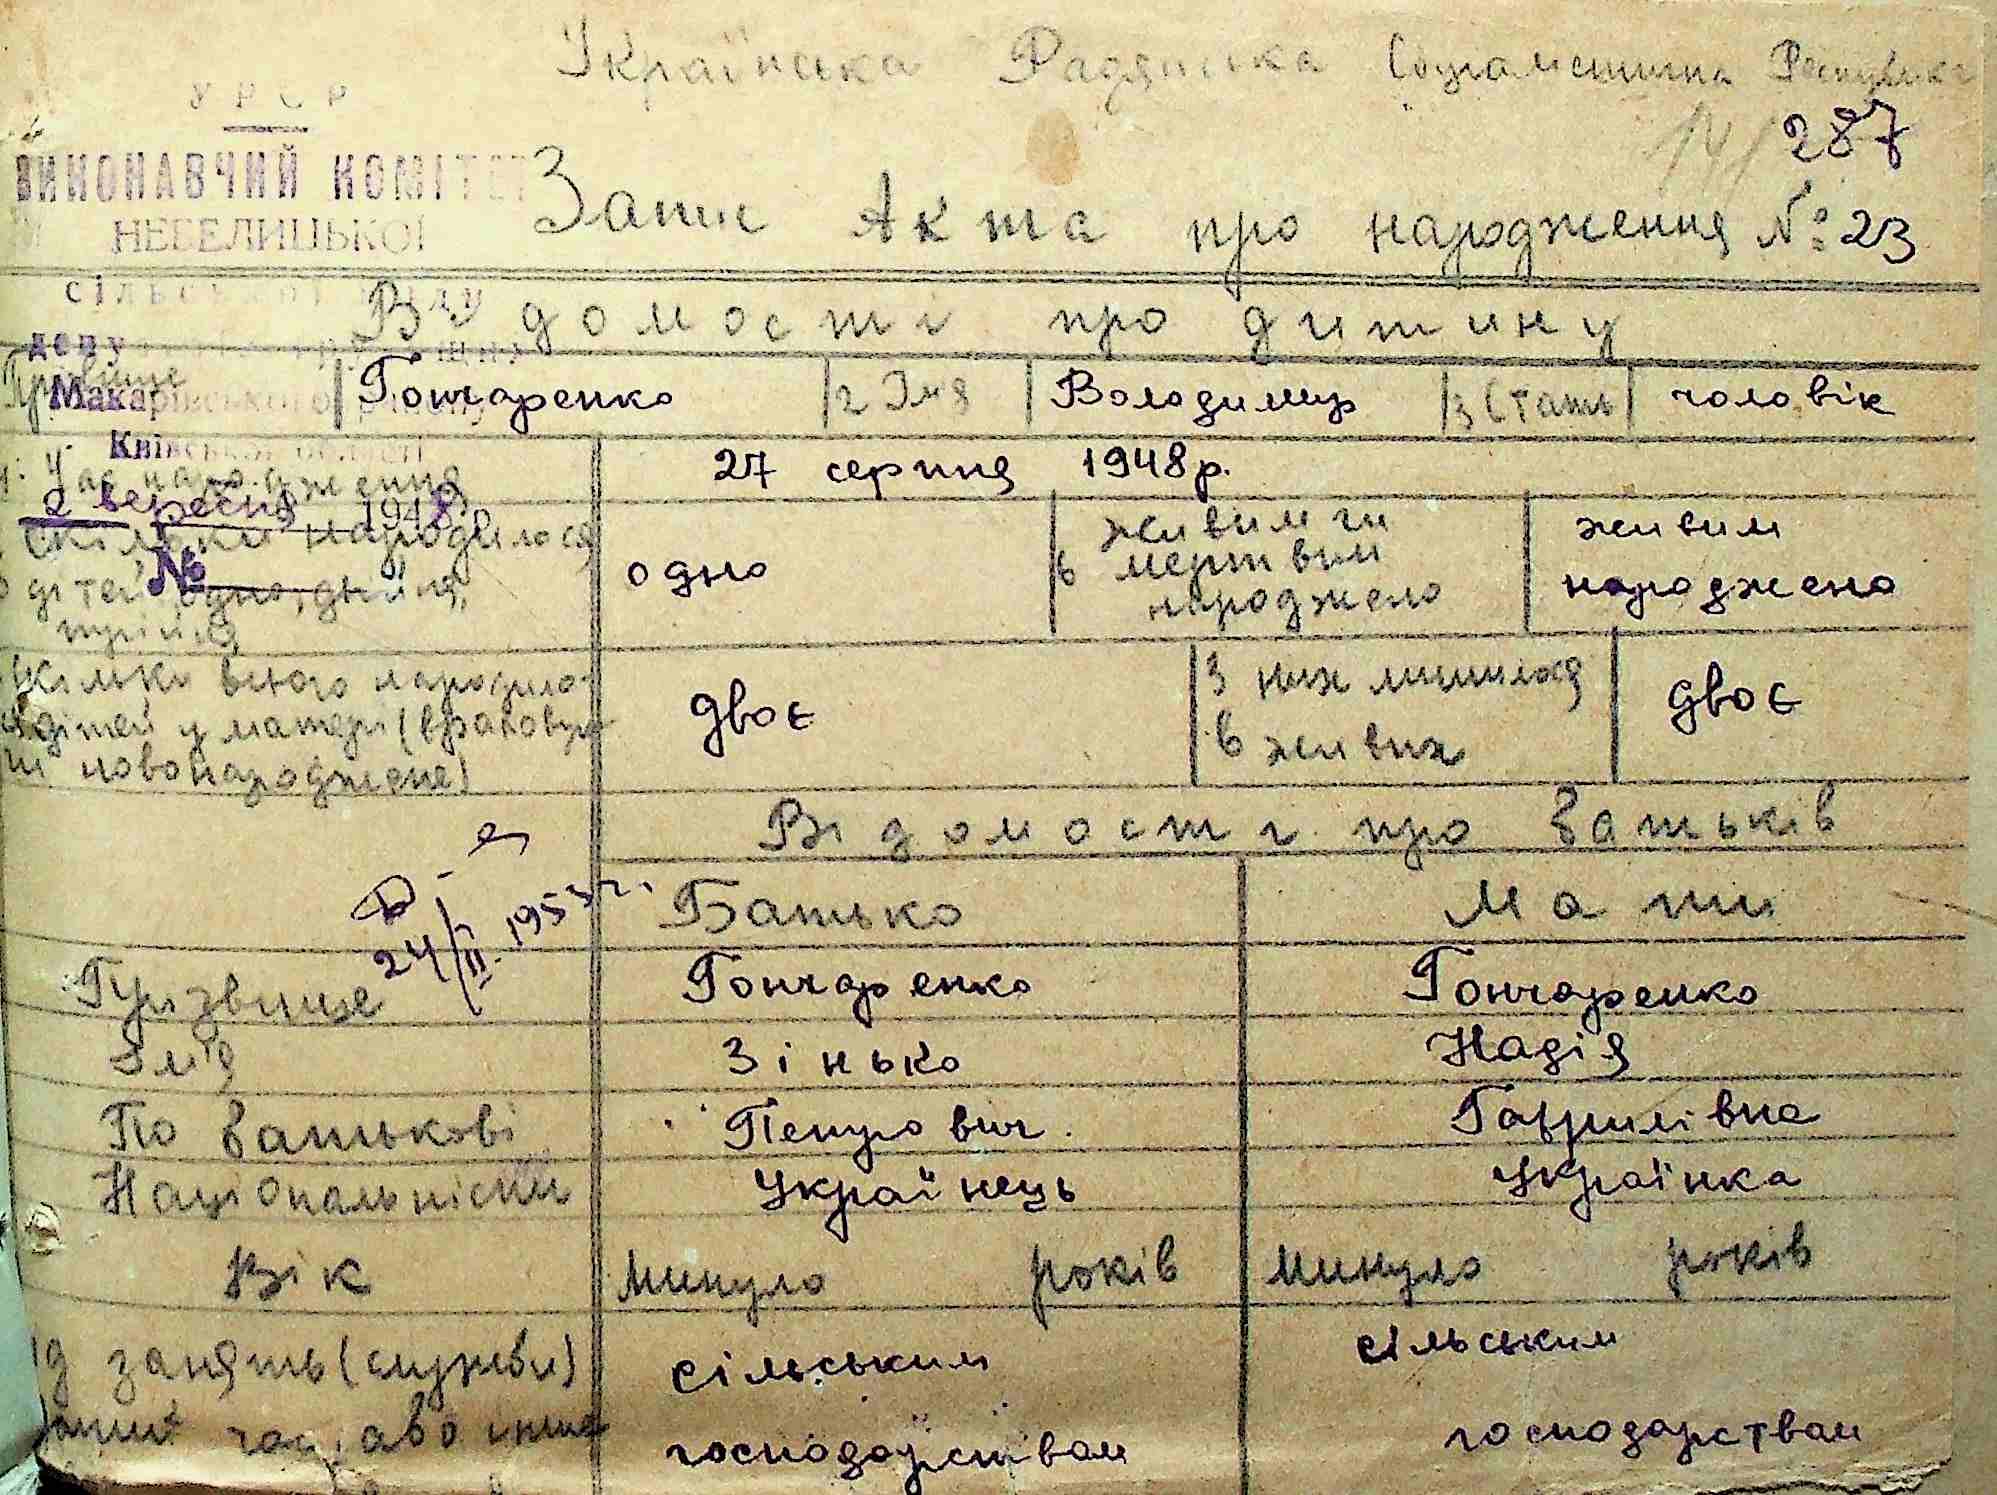 Українська Радянська Соціалистична Республіка
УРСР
287
ВИКОНАВЧИЙ КОМІТЕТ
НЕБЕЛИЦЬКОЇ
Запис Акта про народження № 23
сільської
Відомості про дитину
Прізвище Гончаренко 2 Імя Володимир 3 Стать чоловік
Макарівського
Київської області
Час народження 27 серпня 1948р.
2 вересня 1948
№
Скільки народилося дітей одно, двійня, трійня
одно
6 живим чи мертвим народжено
живим народжено
Скільки всього народилося дітей у матері (враховуючи новонароджене)
двоє
З них лишилося в живих
двоє
Відомості про батьків
24/II. 1953 р.
Батько Мати
Прізвище Гончаренко Гончаренко
Імя Зінько Надія
По батькові Петрович Гаврилівна
Національність Українець Українка
Вік минуло років минуло років
занять (служби) сільським сільським
час, або інше господарством господарством